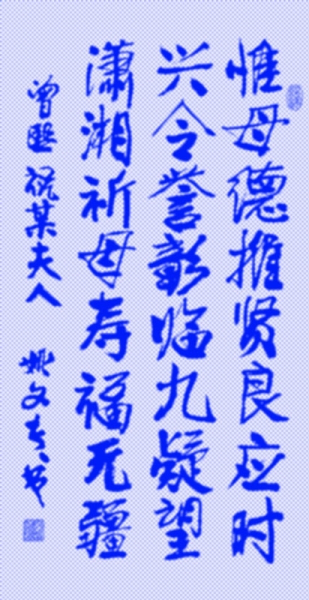 惟母德推贤良应时
兴令誉彰临九疑望
潇湘祈母寿福无疆
曾熙祝某夫人 姚文书